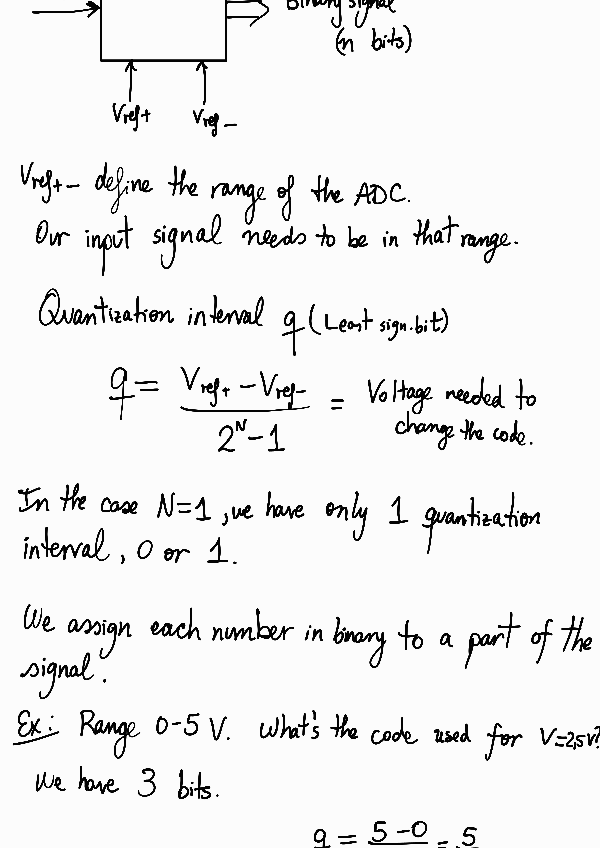 Binary signal
(n bits)
Vref+ Vref-
Vref+- define the range of the ADC.
Our input signal needs to be in that range.
Quantization interval q (Least sign.bit)
q = Vref+ - Vref- / 2^N - 1 = Voltage needed to
change the code.
In the case N=1, we have only 1 quantization
interval, 0 or 1.
We assign each number in binary to a part of the
signal.
Ex: Range 0-5 V. What's the code used for V=2,5V?
We have 3 bits.
q = 5-0 = 5